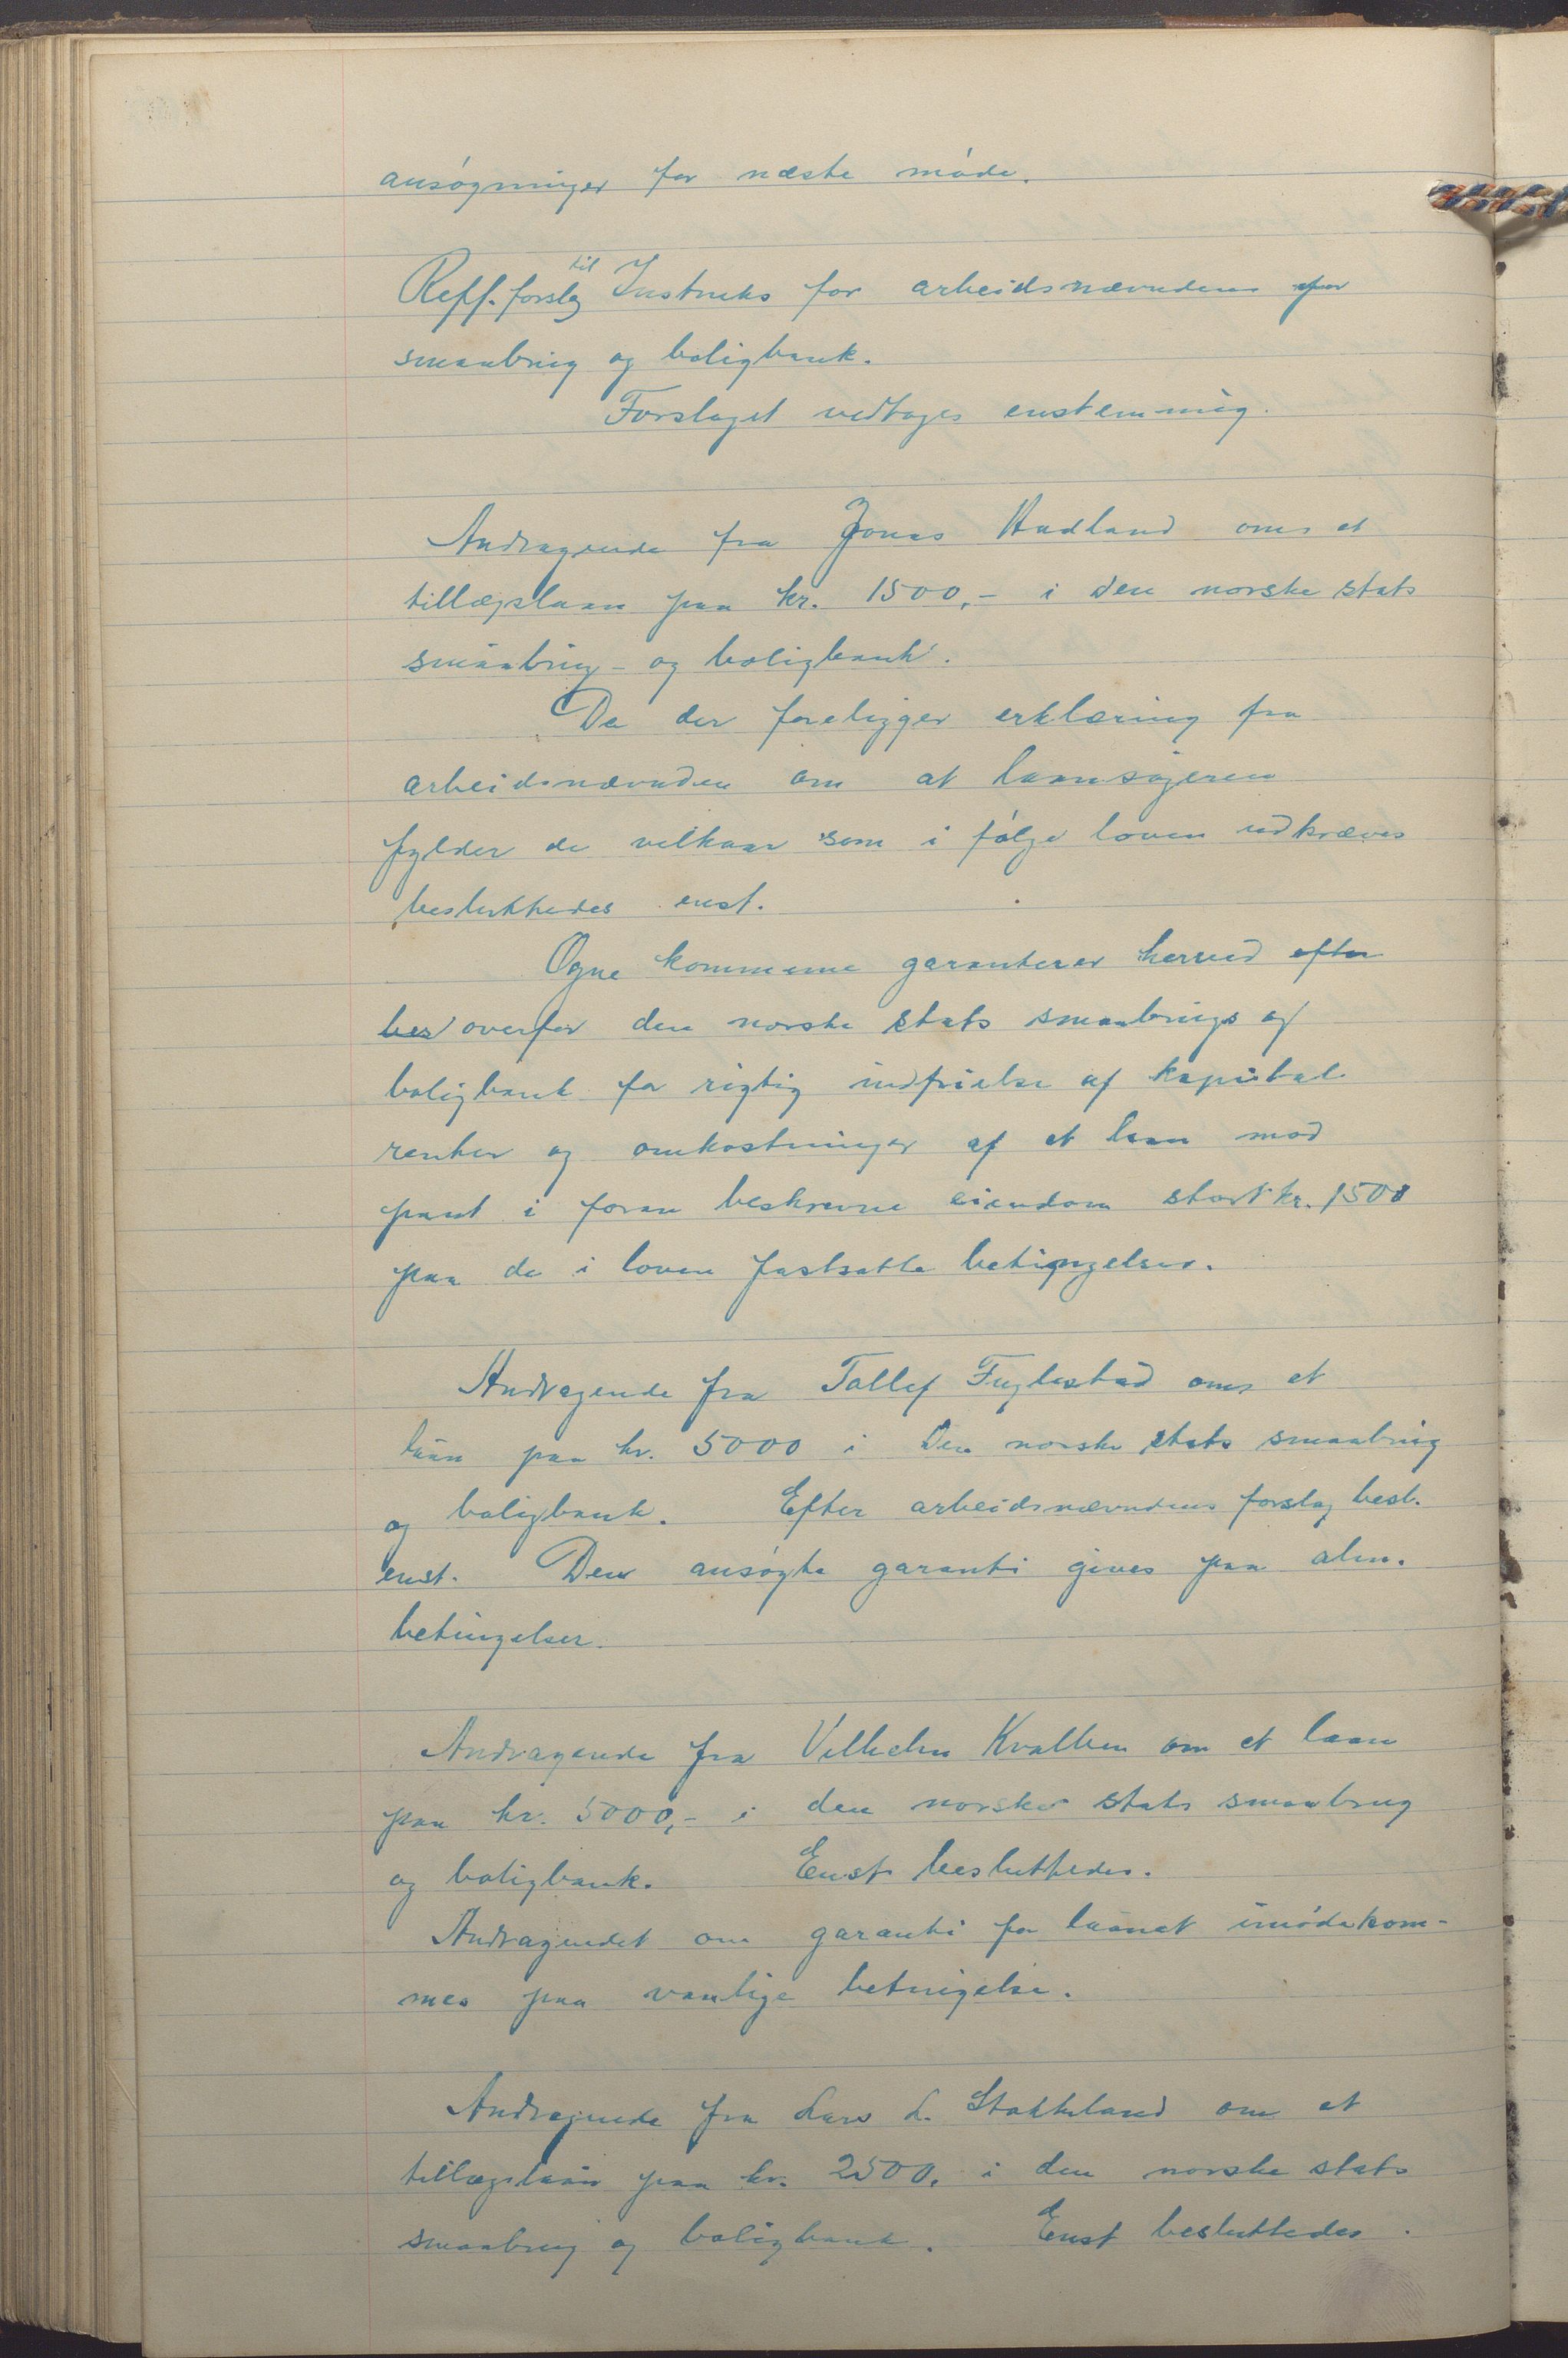 ansøgninger for næste møde.
Reff. forslag til Instruks for arbeidsnævnden for
smaabrug og boligbank.
Forslaget vedtages enstemmig.
Andragende fra Jonas Hadland om et
tillægslaan paa kr. 1500,- i den norske stats
smaabrug- og boligbank.
Da der foreligger erklæring fra
arbeidsnævnden om at laansøgeren
fylder de vilkaar som i følge loven udkræves
besluttedes enst.
Ogne kommune garanterer herved efter
bes overfor den norske stats smaabrugs og
boligbank for rigtig indfrielse af kapital
renter og omkostninger af et laan mod
pant i foran beskrevne eiendom stort kr. 1500
paa de i loven fastsatte betingelser.
Andragende fra Tollef Fuglestad om et
laan paa kr. 5000 i den norske stats smaabrug
og boligbank. Efter arbeidsnævndens forslag besl.
enst. Den ansøgte garanti gives paa alm.
betingelser.
Andragende fra Vilhelm Kvalben om et laan
paa kr. 5000,- i den norske stats smaabrug
og boligbank. Enst besluttedes.
Andragendet om garanti for laanet imødekom-
mes paa vanlige betingelse.
Andragende fra Lars L. Stokkeland om et
tillægslaan paa kr. 2500, i den norske stats
smaabrug og boligbank. Enst besluttedes.